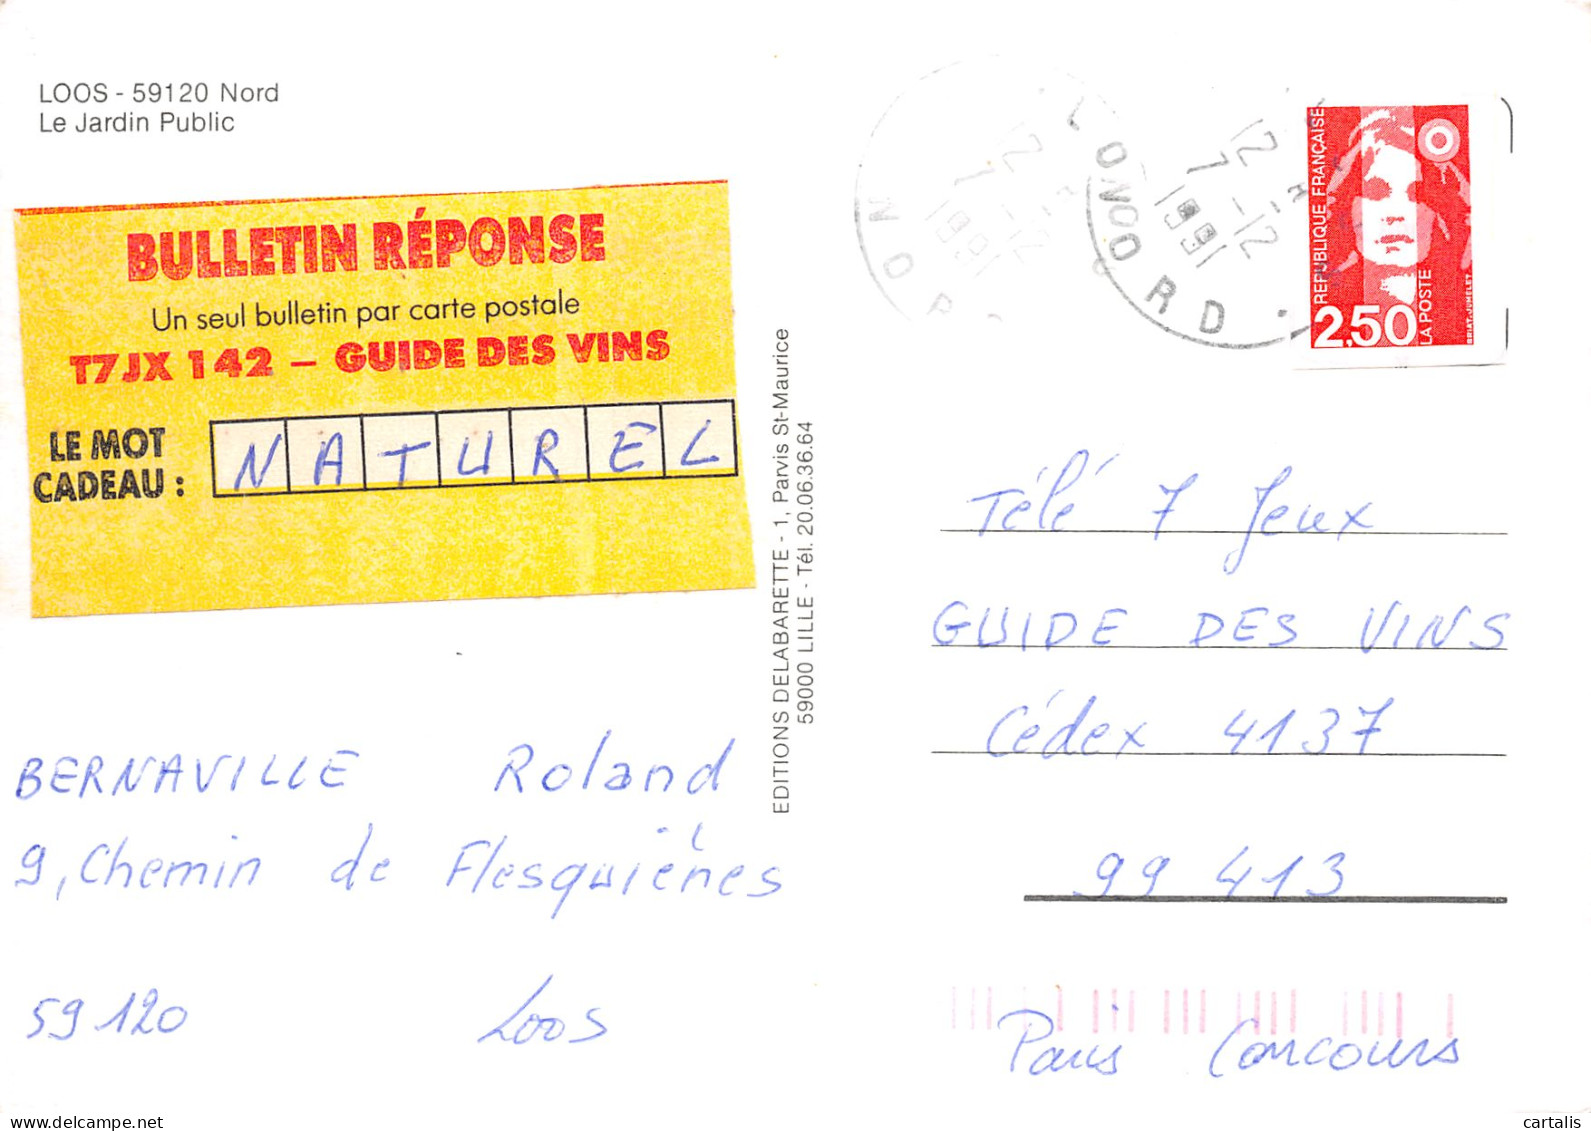 LOOS - 59120 Nord
Le Jardin Public
BULLETIN RÉPONSE
Un seul bulletin par carte postale
T7JX 142 – GUIDE DES VINS
LE MOT
CADEAU :
NATUREL
BERNAVILLE Roland
9, Chemin de Flesquières
59120 Loos
EDITIONS DELABARETTE - 1, Parvis St-Maurice
59000 LILLE - Tél. 20.06.36.64
LOOS
12 H
7 -12
1991
NORD
REPUBLIQUE FRANÇAISE
2,50
LA POSTE
BRIAT-JUMELET
Télé 7 Jeux
GUIDE DES VINS
Cédex 4137
99 413
Paris Concours
cartalis.com